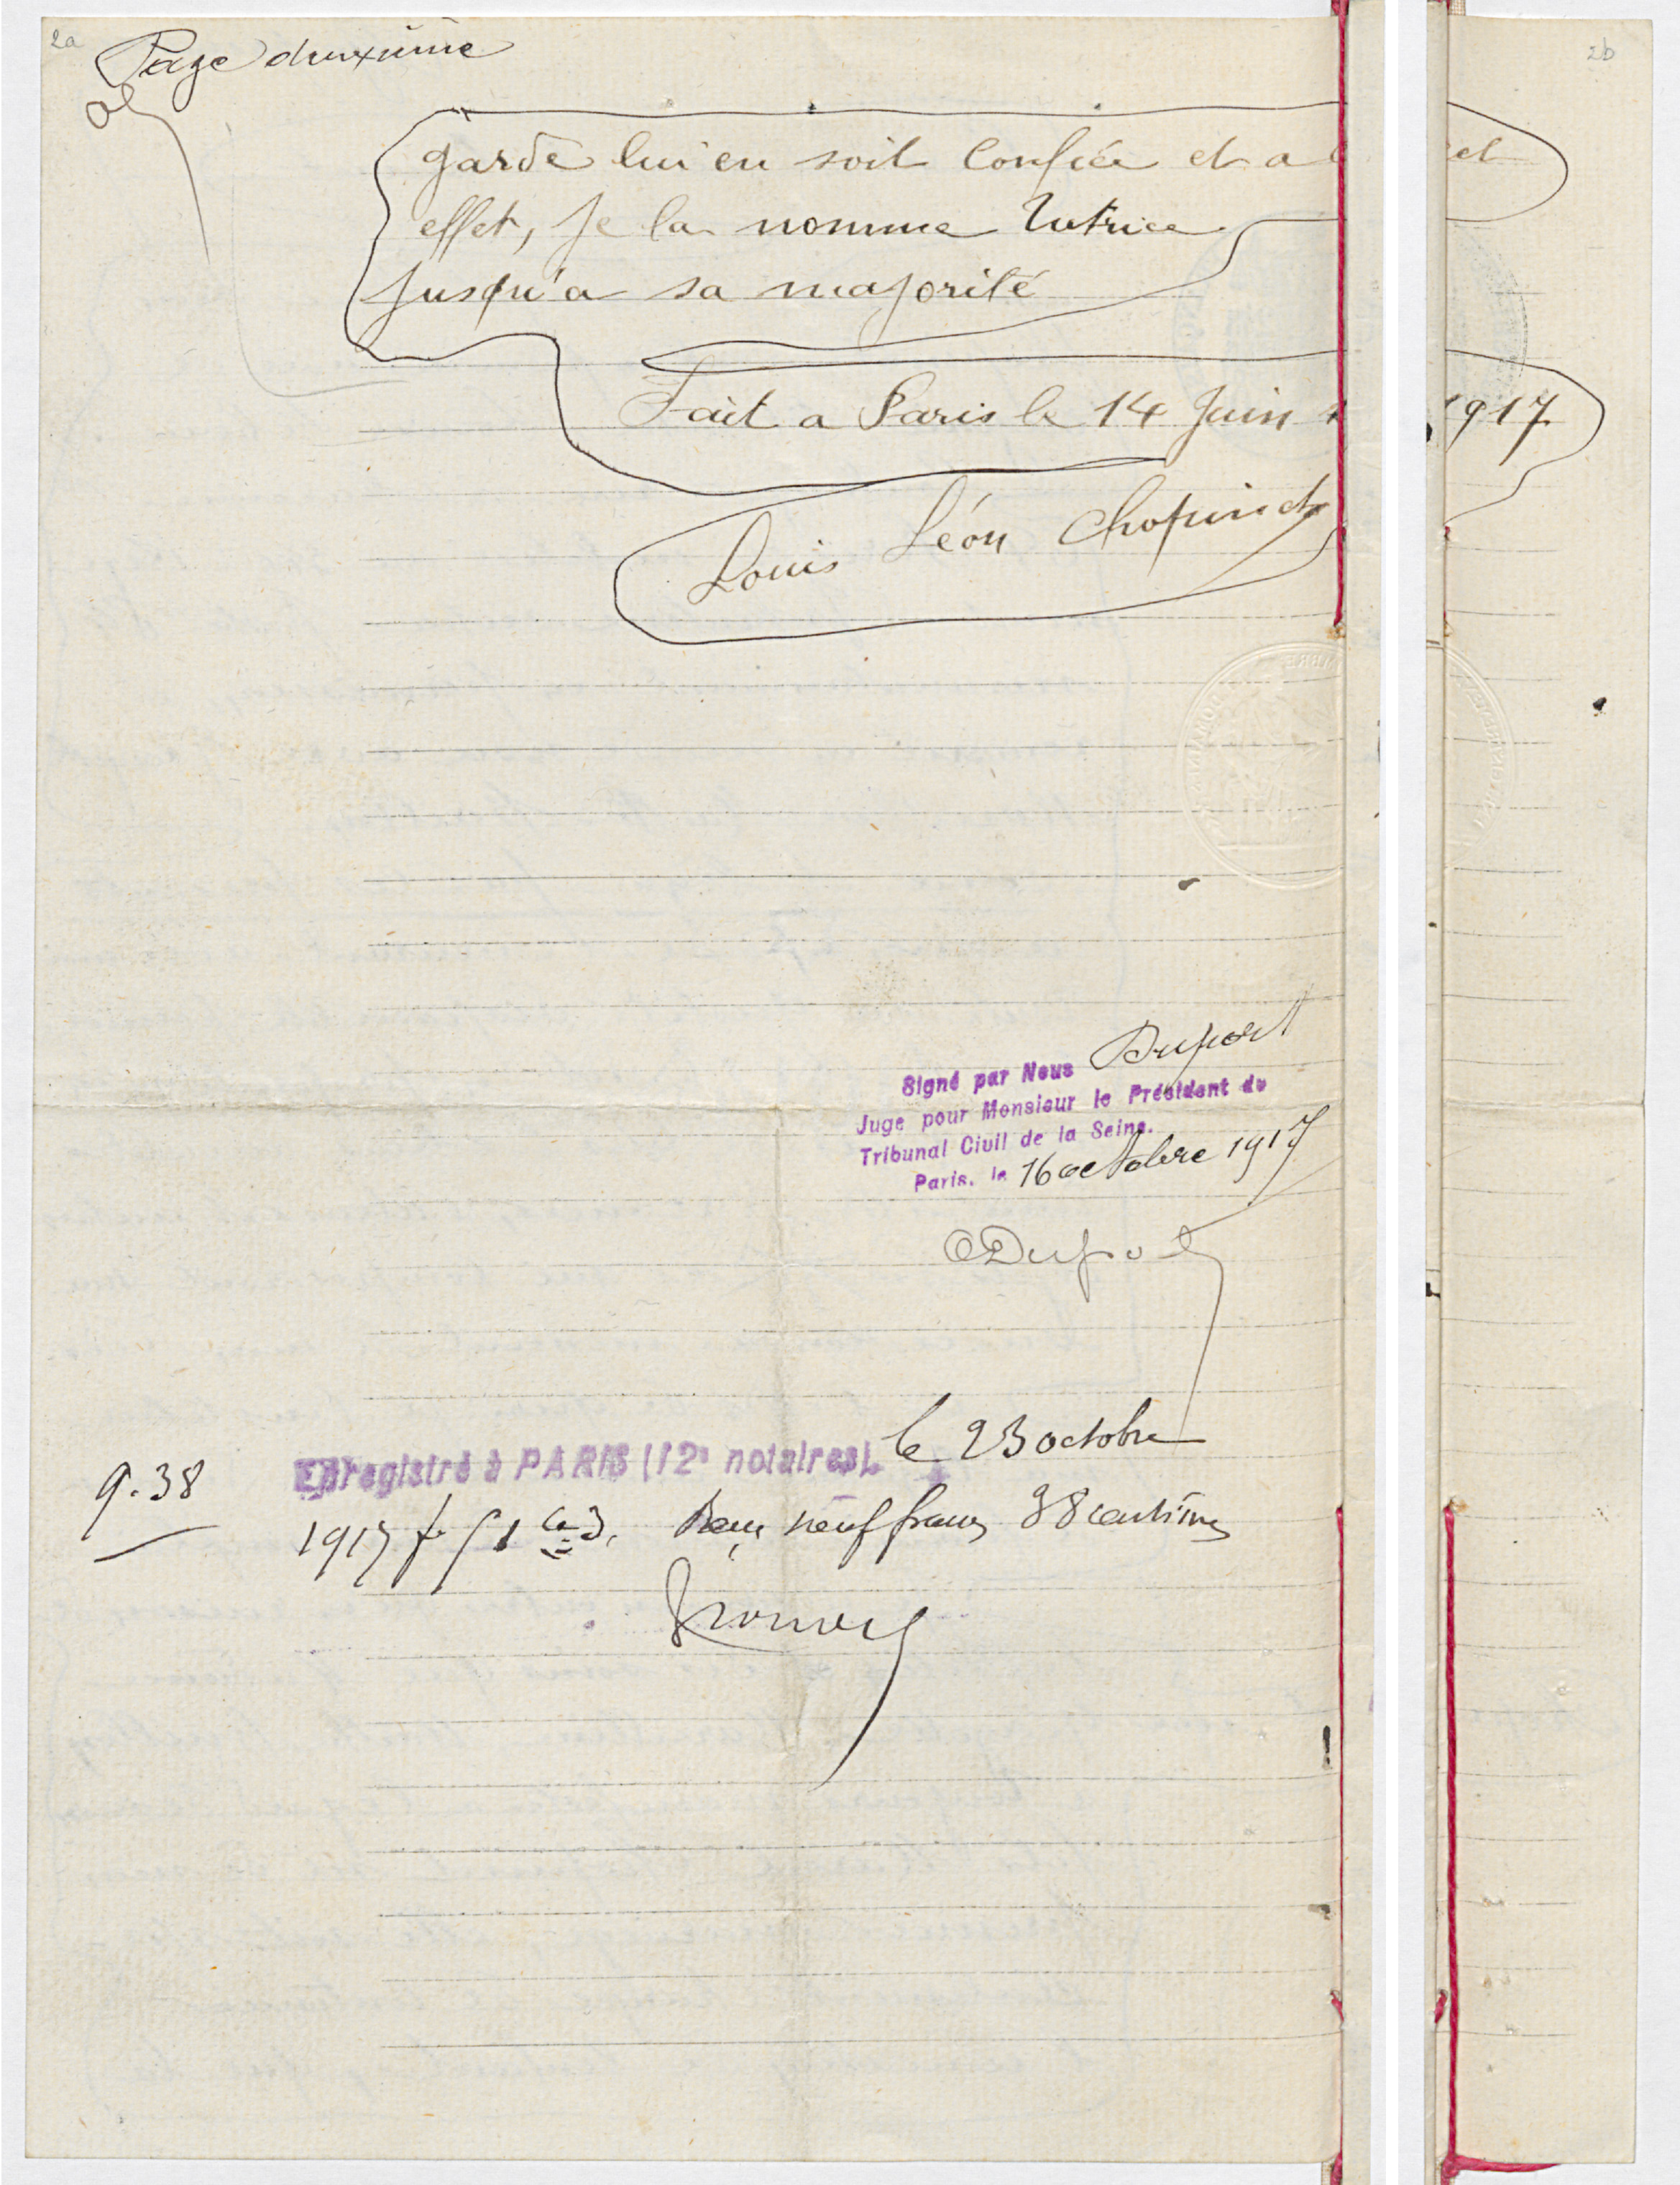 2a
Page deuxième
garde lui en soit confiée et a cet
effet, je la nomme tutrice
jusqu'a sa majorité
Fait a Paris le 14 Juin 1917
Louis Léon Chopinet
Signé par Nous Dupont
Juge pour Monsieur le Président du
Tribunal Civil de la Seine.
Paris. le 16 octobre 1917
Enregistré à PARIS (12e notaires). le 23 octobre
9.38
1917 fo Reçu neuf francs 38 centimes
2b